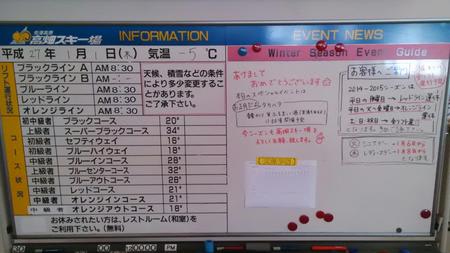 高畑スキー場
INFORMATION
平成27年1月1日(木) 気温 -5℃
リフト運行状況
ブラックラインA AM8:30
ブラックラインB
ブルーライン AM8:30
レッドライン AM8:30
オレンジライン AM8:30
天候、積雪などの条件
により多少変更するこ
とがあります。
ご了承下さい。
コース状況
初中級者 ブラックコース 20°
上級者 スーパーブラックコース 34°
初級者 セフティウェイ 16°
初級者 ブルーハイウェイ 18°
中級者 ブルーインコース 28°
上級者 ブルーセンターコース 32°
中級者 ブルーアウトコース 28°
中級者 レッドコース 21°
中級者 オレンジインコース 21°
中級者 オレンジアウトコース 18°
お休みされたい方は、レストルーム(和室)を
ご利用下さい。(無料)
EVENT NEWS
Winter Season Event Guide
あけまして
おめでとうございます
本日のスペシャルイベントは
今シーズンも高畑スキー場を
よろしくお願い致します。
お客様へ
2014-2015シーズンは
平日の月曜日→レッドライン運休
平日の火~金曜日→オレンジライン
運休
土・日・祝日→全リフト運行
となります